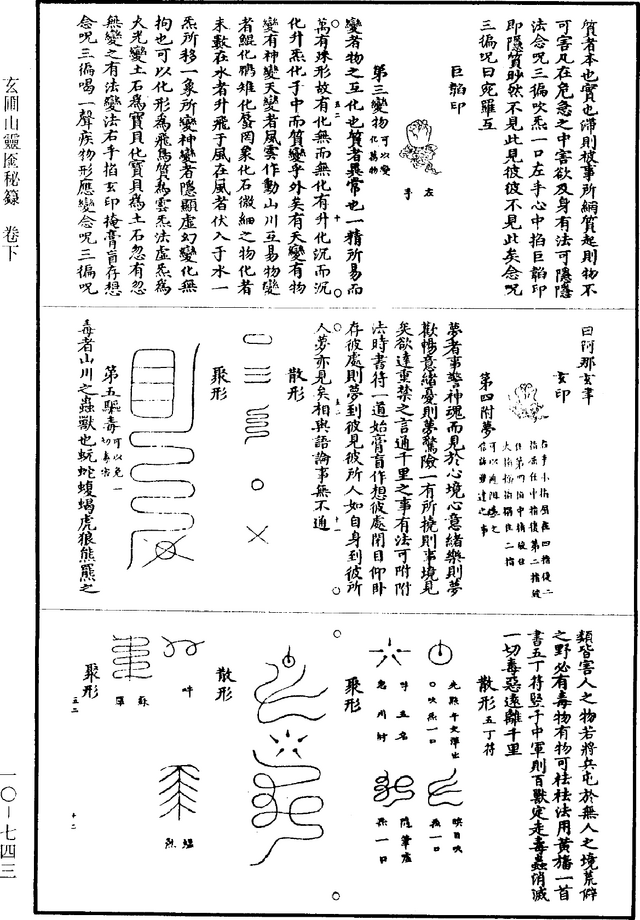 質者本也實也滯則被事所網質起則物不
可害凡在危急之中害欲及身有法可隱隱
法念呪三徧吹炁一口左手心中掐巨韜印
即隱質眇然不見此見彼彼不見此矣念呪
三徧呪曰蛇羅互
巨韜印
左
手
第三變物可以變化萬物
變者物之互化也質者異常也一精所易而
萬有殊形故有化無而無化有升化沉而沉
化升炁化于中而質變乎外矣有天變有物
變有神變天變者風雲作動山川互易物變
者鯤化鵬雄化蜃罔象化石微細之物化者
未數在水者升飛于風在風者伏入于水一
炁所移一象所變神變者隱顯虛幻變化無
拘也可以化形爲飛馬質爲雲炁法虛炁爲
火光變土石爲寶貝化寶貝爲土石忽有忽
無變之有法變法右手掐玄印掩膏肓存想
念呪三徧喝一聲疾物形應變念呪三徧呪
曰阿那玄牟
玄印
第四附夢可以通阻隔之信話難達之事
夢者事警神魂而見於心境心意緒樂則夢
歡暢意緒憂則夢驚險一有所撓則事境見
矣欲達重禁之言通千里之事有法可附附
法時書符一道始膏肓作想彼處閉目仰卧
存彼處則夢到彼見彼所人如自身到彼所
人夢亦見矣相與語論事無不通
散形
聚形
第五驅毒可以免一切毒害
毒者山川之蟲獸也蚖蛇蝮蝎虎狼熊羆之
類皆害人之物若將兵屯於無人之境荒僻
之野必有毒物有物可祛祛法用黃旛一首
書五丁符竪于中軍則百獸定走毒蟲消滅
一切毒惡遠離千里
散形五丁符
聚形
散形
聚形
玄圃山靈匱秘籙 卷下
一〇—七四三